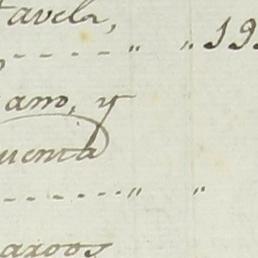 tavela,
- - - - - " " 19
ano, y
uenta
- - - - - " "
argos